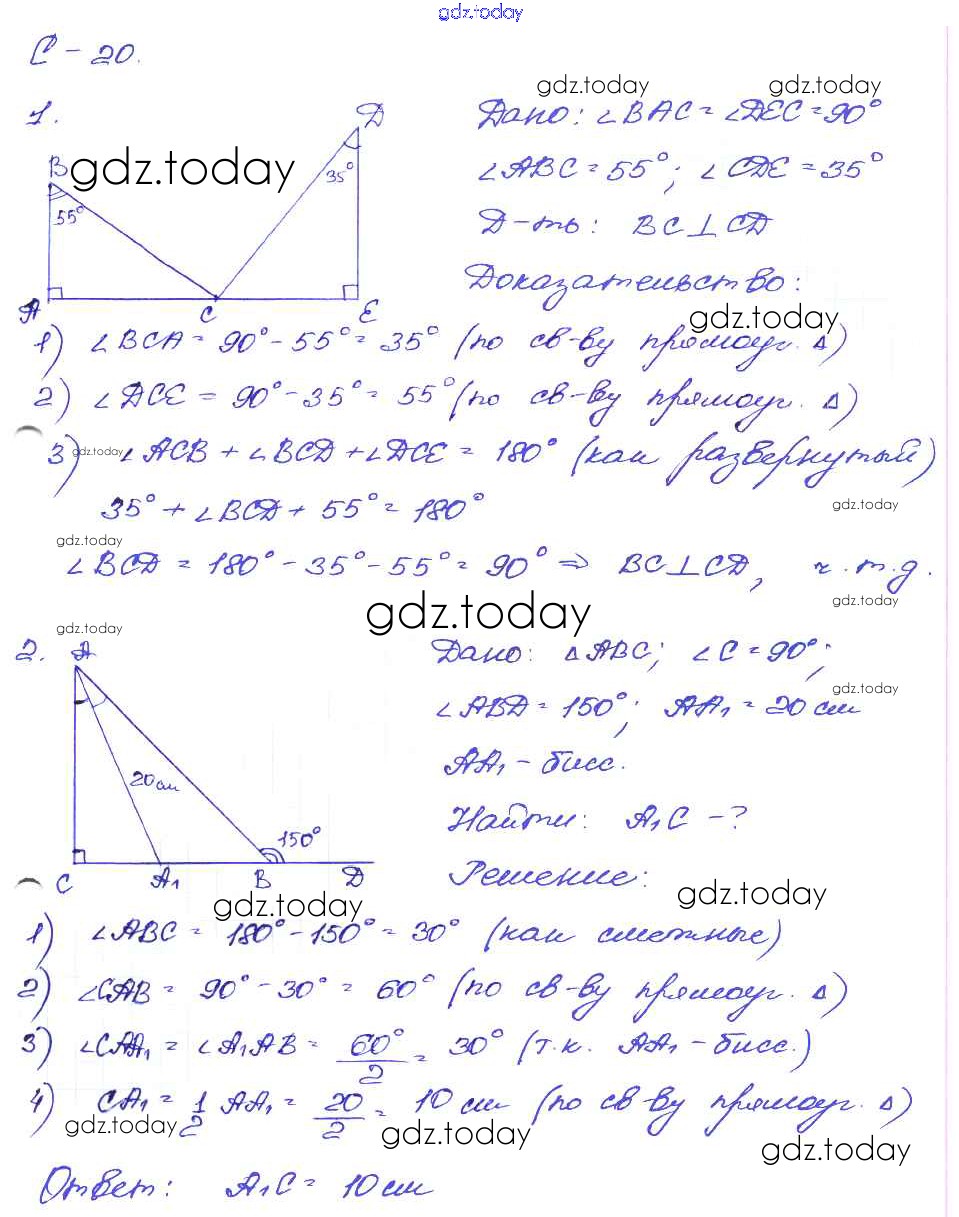 gdz.today
С - 20.
gdz.today gdz.today
1.
Дано: ∠BAC = ∠DEC = 90°
∠ABC = 55°; ∠CDE = 35°
Д-ть: BC⊥CD
Доказательство:
B D 55° 35° A C E
gdz.today
gdz.today
1) ∠BCA = 90° - 55° = 35° (по св-ву прямоуг. Δ)
2) ∠DCE = 90° - 35° = 55° (по св-ву прямоуг. Δ)
3) ∠ACB + ∠BCD + ∠DCE = 180° (как развернутый)
gdz.today
35° + ∠BCD + 55° = 180°
gdz.today
gdz.today
∠BCD = 180° - 35° - 55° = 90° ⇒ BC⊥CD, ч.т.д.
gdz.today
gdz.today
gdz.today
2.
Дано: ΔABC; ∠C = 90°;
∠ABD = 150°; AA₁ = 20 см
gdz.today
AA₁ - бисс.
Найти: A₁C - ?
Решение:
A 20 см 150° C A₁ B D
gdz.today
gdz.today
1) ∠ABC = 180° - 150° = 30° (как смежные)
2) ∠CAB = 90° - 30° = 60° (по св-ву прямоуг. Δ)
3) ∠CAA₁ = ∠A₁AB = 60°/2 = 30° (т.к. AA₁ - бисс.)
4) CA₁ = 1/2 AA₁ = 20/2 = 10 см (по св-ву прямоуг. Δ)
gdz.today gdz.today gdz.today
Ответ: A₁C = 10 см